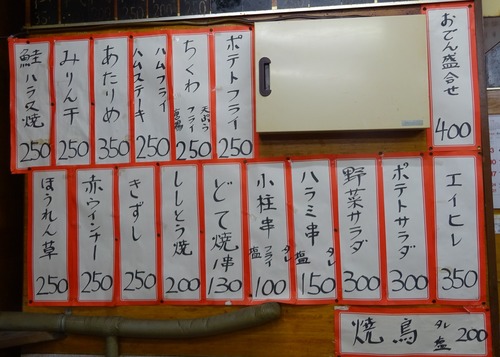 おでん盛合せ
400
ポテトフライ
250
ちくわ
天ぷら
フライ
250
ハムフライ
ハムステーキ
250
あたりめ
350
みりん干
250
鮭ハラス焼
250
エイヒレ
350
ポテトサラダ
300
野菜サラダ
300
ハラミ串
タレ
塩
150
小柱串
タレ
フライ
塩
100
どて焼
1串
130
ししとう焼
200
きずし
250
赤ウインナー
250
ほうれん草
250
焼鳥
タレ
塩
200